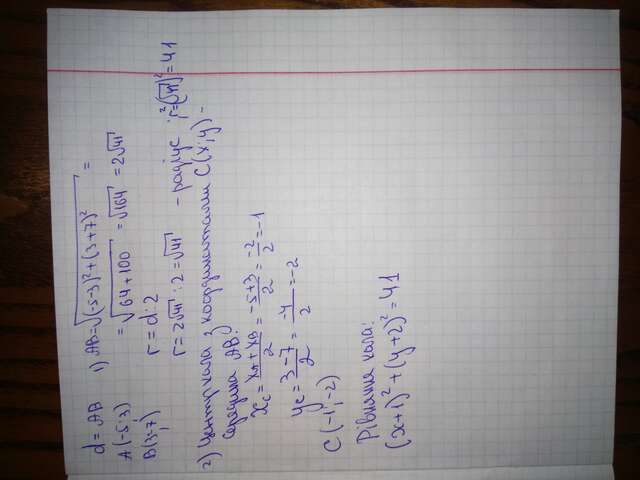 d = AB 1) AB=√(-5-3)²+(3+7)² =
A(-5;3) = √64+100 = √164 = 2√41
B(3;-7) r = d:2
r = 2√41 : 2 = √41 - радіус ; r²=(√41)²=41
2) Центр кола з координатами C(x;y) -
середина AB.
xc = xA + xB / 2 = -5+3 / 2 = -2 / 2 = -1
yc = 3-7 / 2 = -4 / 2 = -2
C(-1;-2)
Рівняння кола:
(x+1)² + (y+2)² = 41